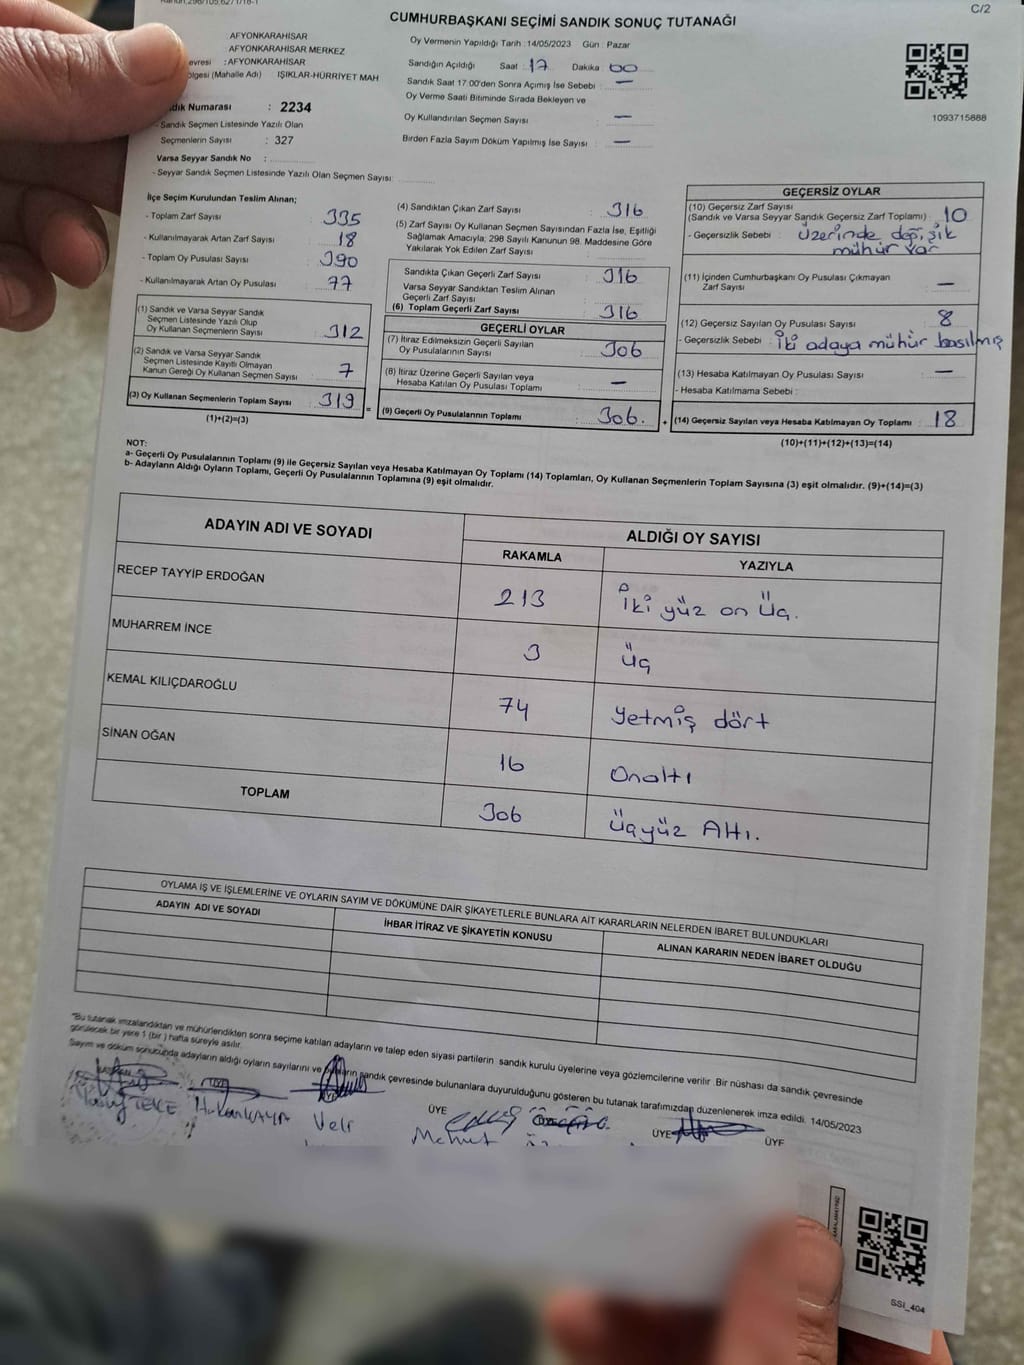 C/2
CUMHURBAŞKANI SEÇİMİ SANDIK SONUÇ TUTANAĞI
AFYONKARAHİSAR
: AFYONKARAHİSAR MERKEZ
evresi : AFYONKARAHİSAR
ölgesi (Mahalle Adı) IŞIKLAR-HÜRRİYET MAH
dık Numarası : 2234
- Sandık Seçmen Listesinde Yazılı Olan
Seçmenlerin Sayısı : 327
Varsa Seyyar Sandık No :
- Seyyar Sandık Seçmen Listesinde Yazılı Olan Seçmen Sayısı:
Oy Vermenin Yapıldığı Tarih : 14/05/2023 Gün : Pazar
Sandığın Açıldığı Saat : 17 Dakika : 00
Sandık Saat 17.00'den Sonra Açımış İse Sebebi : —
Oy Verme Saati Bitiminde Sırada Bekleyen ve
Oy Kullandırılan Seçmen Sayısı : —
Birden Fazla Sayım Döküm Yapılmış İse Sayısı : —
1093715888
İlçe Seçim Kurulundan Teslim Alınan;
- Toplam Zarf Sayısı : 335
- Kullanılmayarak Artan Zarf Sayısı : 18
- Toplam Oy Pusulası Sayısı : 390
- Kullanılmayarak Artan Oy Pusulası : 77
(1) Sandık ve Varsa Seyyar Sandık
Seçmen Listesinde Yazılı Olup
Oy Kullanan Seçmenlerin Sayısı : 312
(2) Sandık ve Varsa Seyyar Sandık
Seçmen Listesinde Kayıtlı Olmayan
Kanun Gereği Oy Kullanan Seçmen Sayısı : 7
(3) Oy Kullanan Seçmenlerin Toplam Sayısı : 319 =
(1)+(2)=(3)
(4) Sandıktan Çıkan Zarf Sayısı : 316
(5) Zarf Sayısı Oy Kullanan Seçmen Sayısından Fazla İse, Eşitliği
Sağlamak Amacıyla; 298 Sayılı Kanunun 98. Maddesine Göre
Yakılarak Yok Edilen Zarf Sayısı
Sandıkta Çıkan Geçerli Zarf Sayısı : 316
Varsa Seyyar Sandıktan Teslim Alınan
Geçerli Zarf Sayısı
(6) Toplam Geçerli Zarf Sayısı : 316
GEÇERLİ OYLAR
(7) İtiraz Edilmeksizin Geçerli Sayılan
Oy Pusulalarının Sayısı : 306
(8) İtiraz Üzerine Geçerli Sayılan veya
Hesaba Katılan Oy Pusulası Toplamı : —
(9) Geçerli Oy Pusulalarının Toplamı : 306. +
GEÇERSİZ OYLAR
(10) Geçersiz Zarf Sayısı
(Sandık ve Varsa Seyyar Sandık Geçersiz Zarf Toplamı) : 10
- Geçersizlik Sebebi : Üzerinde değişik
mühür var
(11) İçinden Cumhurbaşkanı Oy Pusulası Çıkmayan
Zarf Sayısı : —
(12) Geçersiz Sayılan Oy Pusulası Sayısı : 8
- Geçersizlik Sebebi : İki adaya mühür basılmış
(13) Hesaba Katılmayan Oy Pusulası Sayısı : —
- Hesaba Katılmama Sebebi :
(14) Geçersiz Sayılan veya Hesaba Katılmayan Oy Toplamı : 18
(10)+(11)+(12)+(13)=(14)
NOT:
a- Geçerli Oy Pusulalarının Toplamı (9) ile Geçersiz Sayılan veya Hesaba Katılmayan Oy Toplamı (14) Toplamları, Oy Kullanan Seçmenlerin Toplam Sayısına (3) eşit olmalıdır. (9)+(14)=(3)
b- Adayların Aldığı Oyların Toplamı, Geçerli Oy Pusulalarının Toplamına (9) eşit olmalıdır.
ADAYIN ADI VE SOYADI
ALDIĞI OY SAYISI
RAKAMLA YAZIYLA
RECEP TAYYİP ERDOĞAN 213 İki yüz on Üç.
MUHARREM İNCE 3 Üç
KEMAL KILIÇDAROĞLU 74 Yetmiş dört
SİNAN OĞAN 16 Onaltı
TOPLAM 306 Üçyüz Altı.
OYLAMA İŞ VE İŞLEMLERİNE VE OYLARIN SAYIM VE DÖKÜMÜNE DAİR ŞİKAYETLERLE BUNLARA AİT KARARLARIN NELERDEN İBARET BULUNDUKLARI
ADAYIN ADI VE SOYADI İHBAR İTİRAZ VE ŞİKAYETİN KONUSU ALINAN KARARIN NEDEN İBARET OLDUĞU
"Bu tutanak imzalandıktan ve mühürlendikten sonra seçime katılan adayların ve talep eden siyasi partilerin sandık kurulu üyelerine veya gözlemcilerine verilir. Bir nüshası da sandık çevresinde
görülecek bir yere 1 (bir) hafta süreyle asılır.
Sayım ve döküm sonucunda adayların aldığı oyların sayılarını ve sandık çevresinde bulunanlara duyurulduğunu gösteren bu tutanak tarafımızdan düzenlenerek imza edildi. 14/05/2023
BAŞKAN ÜYE ÜYE ÜYE
Yusuf TEKE Hakan KAYA Veli Mehmet
SSI_404